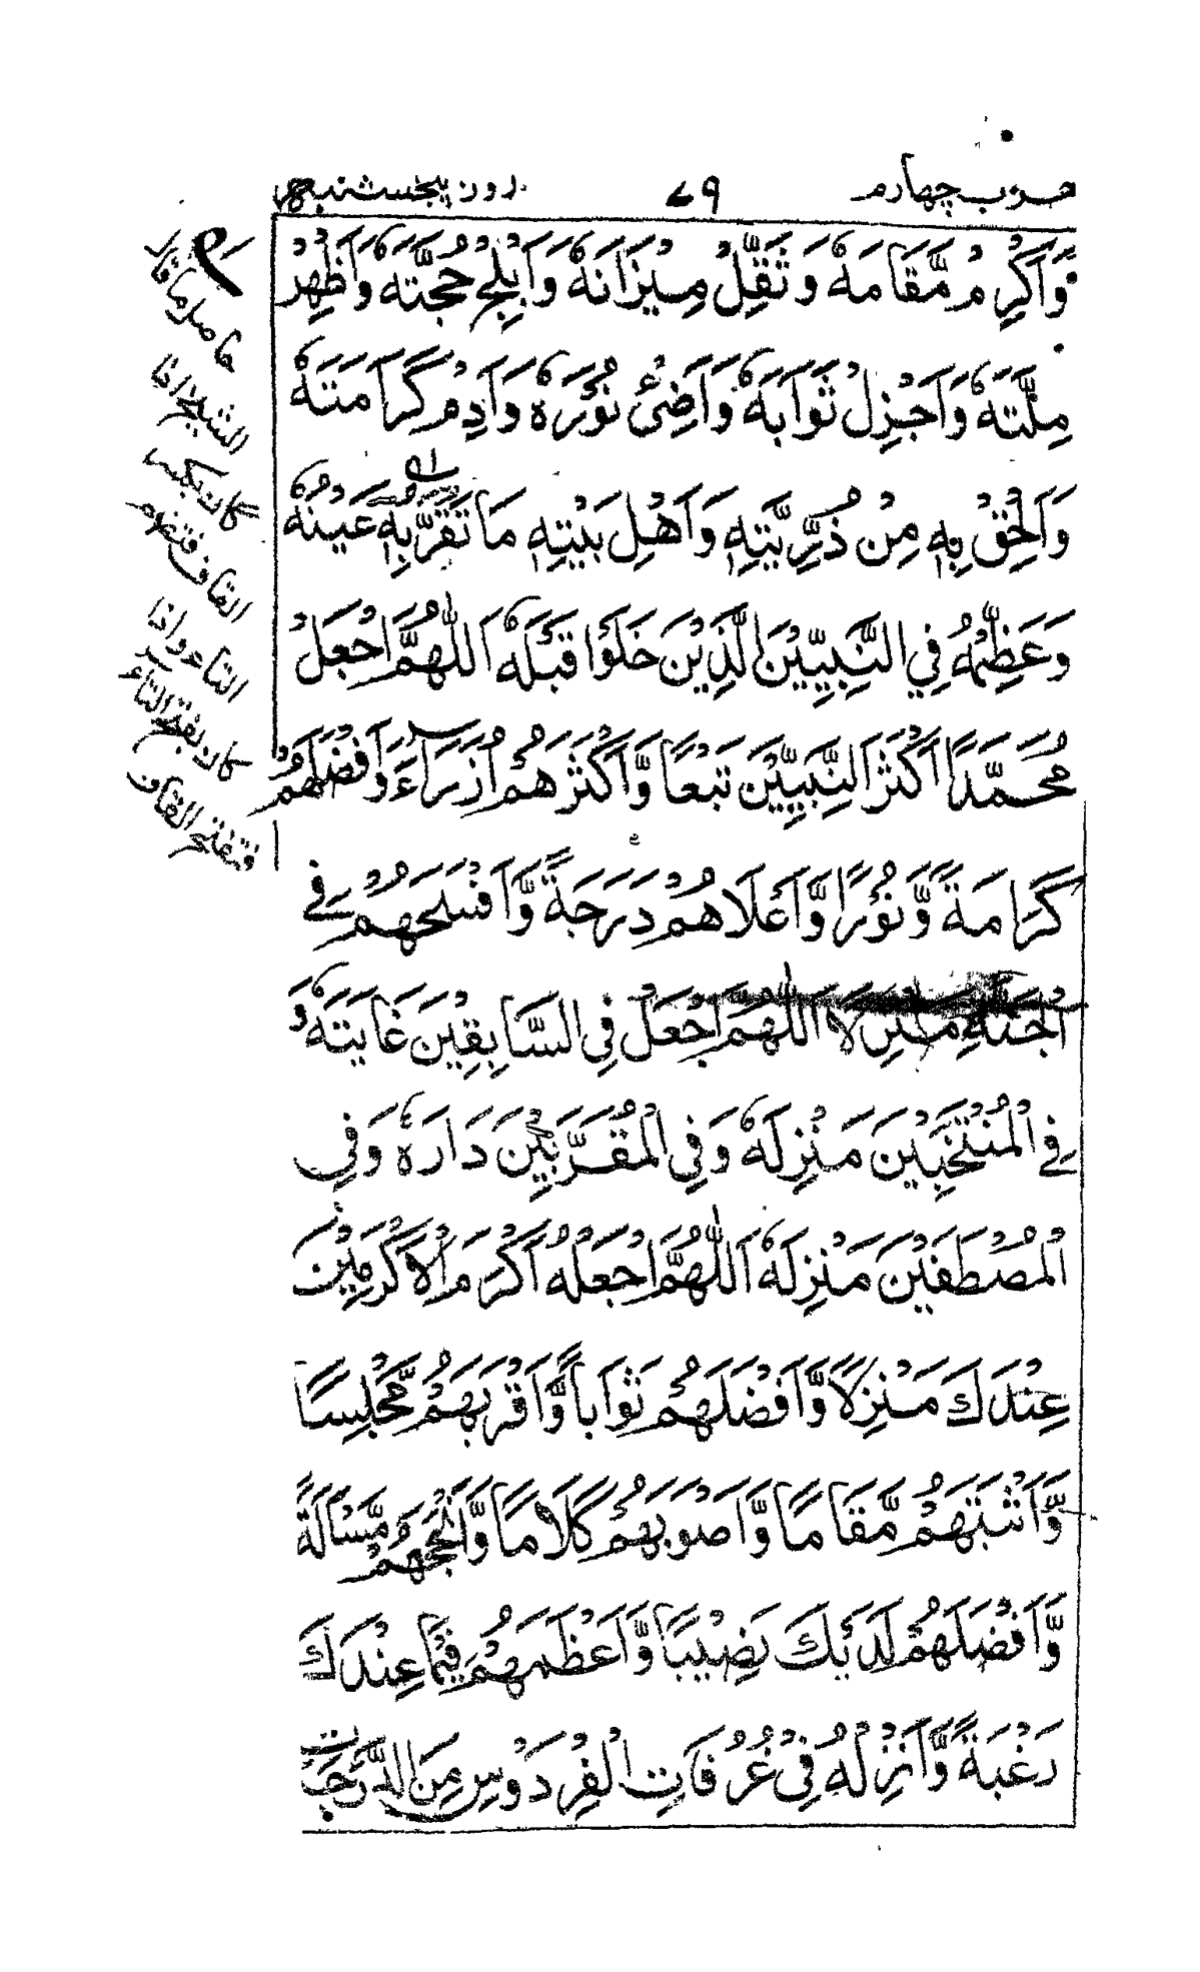 حزب چهارم ٧٩ روز پنجشنبه
وَاَكْرِمْ مَّقَامَهٗ وَثَقِّلْ مِيْزَانَهٗ وَاَبْلِجْ حُجَّتَهٗ وَاَظْهِرْ
مِلَّتَهٗ وَاَجْزِلْ ثَوَابَهٗ وَاَضِئْ نُوْرَهٗ وَاَدِمْ كَرَامَتَهٗ
وَاَلْحِقْ بِهٖ مِنْ ذُرِّيَّتِهٖ وَاَهْلِ بَيْتِهٖ مَا تَقَرُّ بِهٖ عَيْنُهٗ
وَعَظِّمْهُ فِي النَّبِيِّيْنَ الَّذِيْنَ خَلَوْا قَبْلَهٗ اَللّٰهُمَّ اجْعَلْ
مُحَمَّدًا اَكْثَرَ النَّبِيِّيْنَ تَبَعًا وَّاَكْثَرَهُمْ اُزَرَاءَ وَاَفْضَلَهُمْ
كَرَامَةً وَّنُوْرًا وَّاَعْلَاهُمْ دَرَجَةً وَّاَفْسَحَهُمْ فِي
الْجَنَّةِ مَنْزِلًا اَللّٰهُمَّ اجْعَلْ فِي السَّابِقِيْنَ غَايَتَهٗ وَ
فِي الْمُنْتَخَبِيْنَ مَنْزِلَهٗ وَفِي الْمُقَرَّبِيْنَ دَارَهٗ وَفِي
الْمُصْطَفَيْنَ مَنْزِلَهٗ اَللّٰهُمَّ اجْعَلْهُ اَكْرَمَ الْاَكْرَمِيْنَ
عِنْدَكَ مَنْزِلًا وَّاَفْضَلَهُمْ ثَوَابًا وَّاَقْرَبَهُمْ مَّجْلِسًا
وَّاَثْبَتَهُمْ مَّقَامًا وَّاَصْوَبَهُمْ كَلَامًا وَّاَنْجَحَهُمْ مَّسْاَلَةً
وَّاَفْضَلَهُمْ لَدَيْكَ نَصِيْبًا وَّاَعْظَمَهُمْ فِيْمَا عِنْدَكَ
رَغْبَةً وَّاَنْزِلْهُ فِيْ غُرُفَاتِ الْفِرْدَوْسِ مِنَ الدَّرَجَاتِ
حاصل ما قال
الشيخ اذا
كان بكسر
القاف فتضم
التاء واذا
كان بفتح التاء
فتفتح القاف